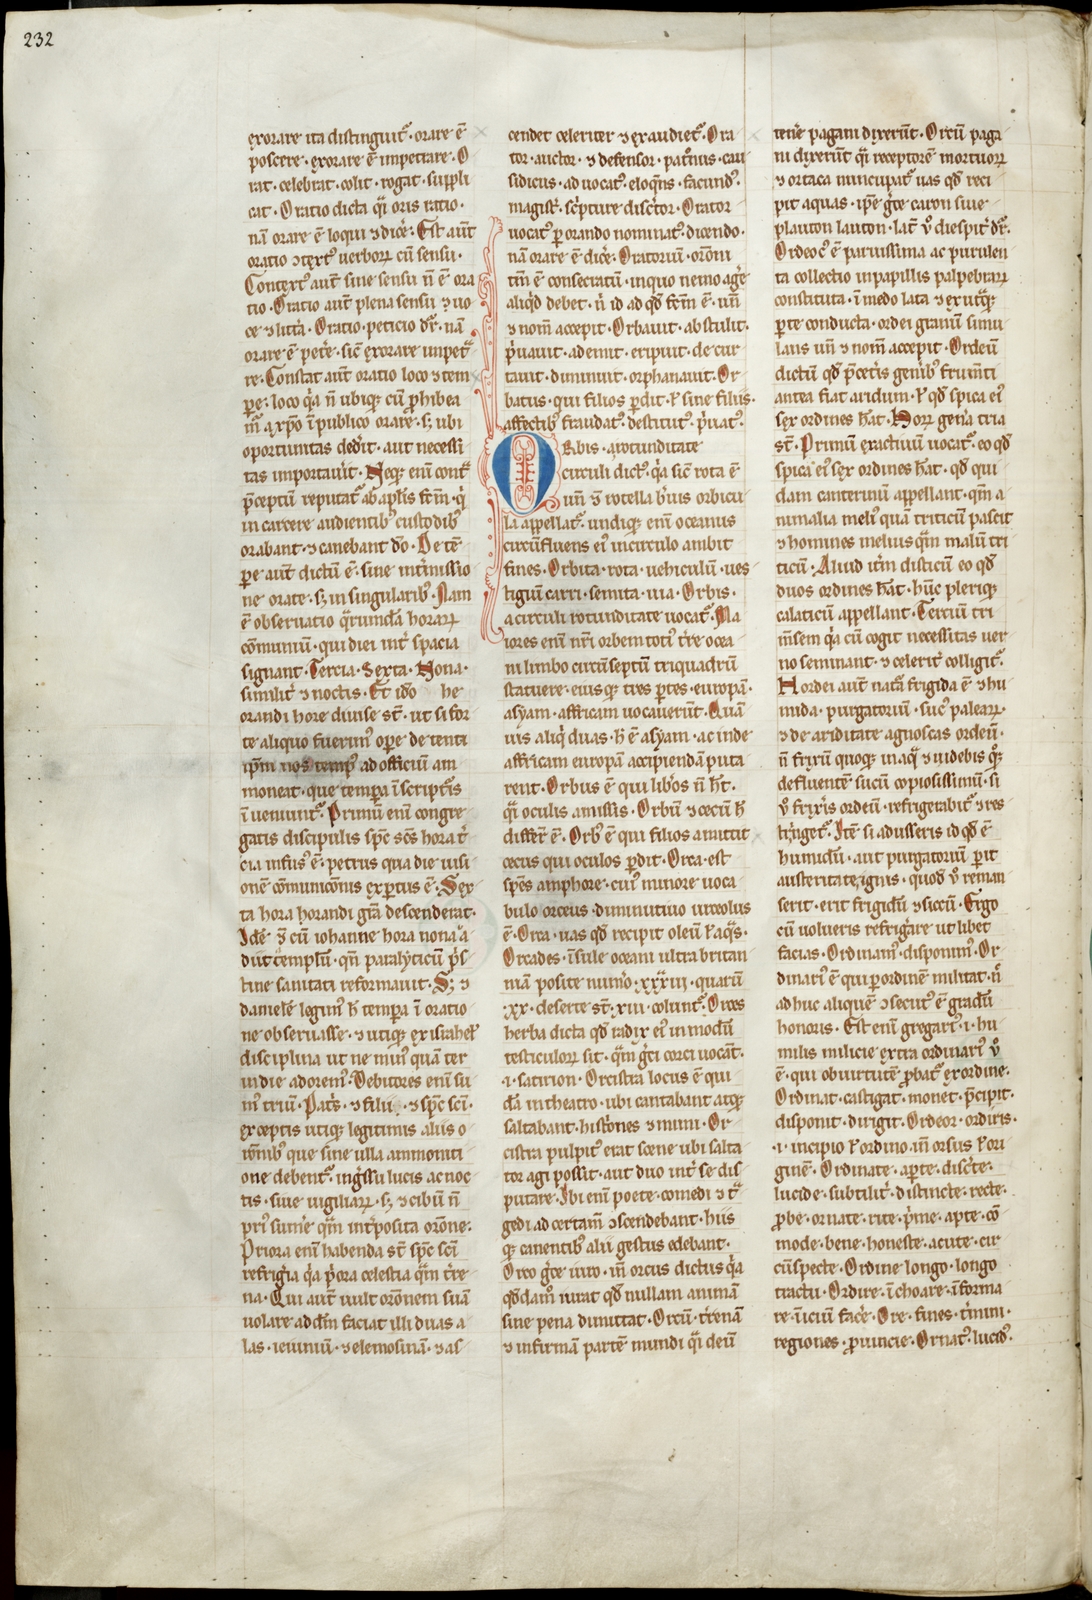 232
exorare ita distinguit᷑. orare ē
poscere. exorare ē impetrare. O
rat. celebrat. colit. rogat. suppli
cat. Oratio dicta q̄i oris ratio.
nā orare ē loqui ⁊ dic̄e. Est aūt
oratio ɔtextꝰ uerborꝝ cū sensu.
Contextꝰ aūt sine sensu n̄ ē ora
tio. Oratio aūt plena sensu ⁊ uo
ce ⁊ litt̄a. Oratio peticio dr̄. nā
orare ē pet̄e. sic̄ exorare impet᷑
re. Constat aūt oratio loco ⁊ tem
ꝑe. loco q̇a n̄ ubiqꝫ cū ꝓhibea
m᷑ a xp̄o ī publico orare. sꝫ ubi
oportunitas ded̄it. aut necessi
tas importau̇it. Neqꝫ enī cont᷑
p̄ceptū reputat᷑ ab apl̄is fc̄m. q̇
in carcere audientibꝰ custodibꝰ
orabant. ⁊ canebant dō. De tē
ꝑe aūt dictū ē. sine int̄missio
ne orate. sꝫ in singularibꝰ. Nam
ē obseruatio q̄rundā horarꝝ
cōmuniū. qui diei int̄ spacia
signant. Tercia. Sexta. Nona.
similit̄ ⁊ noctis. Et idō he
orandi hore diuise st̄. ut si for
te aliquo fuerimꝰ oꝑe detenti
ip̄m nos tempꝰ ad officiū am
moneat. que tempa ī scriptis
īueniunt᷑. Primū enī congre
gatis discipulis sp̄c sc̄s hora t̄
cia infusꝰ ē. petrus qua die uisi
onē cōmunicōnis exꝑtus ē. Sex
ta hora horandi gr̄a descenderat.
Idē ⁊ cū iohanne hora nona a
diit templū. qn̄ paralyticū p̄s
tine sanitati reformauit. Sꝫ ⁊
danielē legimꝰ h̄ tempa ī oratio
ne obseruasse. ⁊ utiqꝫ ex israhel᷑
disciplina ut ne minꝰ quā ter
in die adoremꝰ. Debitores enī su
mꝰ triū. Patis. ⁊ filii. ⁊ sp̄c sc̄i.
exceptis utiqꝫ legitimis aliis o
rōnibꝰ que sine ulla ammoniti
one debent᷑. ing̊ssu lucis ac noc
tis. siue uigiliarꝝ. sꝫ ⁊ cibū n̄
priꝰ sum̄e q̄m int̄posita orōne.
Priora enī habenda st̄ sp̄c sc̄i
refrigīa q̇a p̄ora celestia q̄m t̄re
na. Qui aūt uult orōnem suā
uolare ad dm̄ faciat illi duas a
las. ieiuniū. ⁊ elemosinā. ⁊ as
cendet celeriter ⁊ exaudiet᷑. Ora
tor. auctor. ⁊ defensor. patōnus. cau
sidicus. aduocatꝰ. eloqn̄s. facundꝰ.
magist᷑. sc̄pture disc̄tor. Orator
uocatꝰ ꝑ orando nominatꝰ. dicendo.
nā orare ē dic̄e. Oratoriū. orōni
tm̄ ē consecratū. in quo nemo age᷑
aliq̇d debet. n̄ id ad qd̄ fc̄m ē. un̄
⁊ nom̄ accepit. Orbauit. abstulit.
p̄uauit. ademit. eripuit. decur
tauit. diminuit. orphanauit. Or
batus. qui filios ꝑdit. ł sine filiis.
affectibꝰ fraudatꝰ. destitutꝰ. p̄uatꝰ.
ORbis. a rotunditate
circuli dictꝰ. q̇a sic̄ rota ē
un̄ ⁊ rotella b̄uis orbicu
la appellat᷑. undiqꝫ enī oceanus
circūfluens eiꝰ in circulo ambit
fines. Orbita. rota. uehiculū. ues
tigiū carri. semita. uia. Orbis.
a circuli rotunditate uocat᷑. Ma
iores enī nr̄i orbem totī t̄re ocea
ni limbo circūseptū triquadrū
statuere. eiusqꝫ tres ꝑtes. europā.
asyam. affricam uocauerūt. Quā
uis aliq̇ duas. h̄ ē asyam. ac inde
affricam europā accipiendā puta
rent. Orbus ē qui lib̄os n̄ h̄t.
q̄i oculis amissis. Orbū ⁊ cecū h̄
differ̄t ē. Orbꝰ ē qui filios amittit
cecus qui oculos ꝑdit. Orca est
sp̄es amphore. cuiꝰ minore uoca
bulo orceus. diminutiuo urceolus
ē. Orca. uas qd̄ recipit oleū ł aq̄s.
Orcades. īsule oceani ultra britan
niā posite num̄o. xxxiii. quarū
.xx. deserte st̄. xiii. colunt᷑. Orces
herba dicta qd̄ radix eiꝰ in modū
testiculorꝝ sit. q̄m gc̄i corci uocāt.
.i. satirion. Orcistra locus ē qui
dā in theatro. ubi cantabant atqꝫ
saltabant. histōnes ⁊ mimi. Or
cistra pulpitꝰ erat scene ubi salta
tor agi possit. aut duo int̄ se dis
putare. Ibi enī poete. comedi ⁊ t᷑
gedi ad certam̄ ɔscendebant. hiis
qꝫ canentibꝰ alii gestus edebant.
Orco gc̄e iuro. in̄ orcus dictus q̇a
qd̄dam̄ iurat qd̄ nullam animā
sine pena dimittat. Orcū. t̄renā
⁊ infirmā partē mundi q̄i deū
tene pagani dixerūt. Orcū paga
ni dixerūt q̄i receptorē mortuorꝝ
⁊ ortaca nuncupat᷑ uas qd̄ reci
pit aquas. ip̄e gc̄e caron siue
plauton lauton. lat̄ v̄ diespit̄ dr̄.
Ordeocꝰ ē paruissima ac purulen
ta collectio in papillis palpebrarꝝ
constituta. ī medio lata ⁊ ex ut᷑qꝫ
ꝑte conducta. ordei granū simu
lans un̄ ⁊ nom̄ accepit. Ordeū
dictū qd̄ p̄cet̄is gen̄ibꝰ frum̄ti
antea fiat aridum. ł qd̄ spica eiꝰ
sex ordines h̄at. Horꝝ gen̄a tria
st̄. Primū exaticiū uocat᷑. eo qd̄
spica eiꝰ sex ordines h̄at. qd̄ qui
dam canterinū appellant. q̄m a
nimalia meliꝰ quā triticū pascit
⁊ homines melius q̄m malū tri
ticū. Aliud it̄m disticū eo qd̄
duos ordines h̄at. hūc pleriqꝫ
calaticū appellant. Terciū tri
m̄sem q̇a cū cogit necessitas uer
no seminant. ⁊ celerit̄ colligit᷑.
Hordei aūt nat᷑a frigida ē ⁊ hu
mida. purgatoriū. sucꝰ palearꝝ.
⁊ de ariditate agnoscas ordeū.
n̄ frixū quoqꝫ in aq̄ ⁊ uidebis qꝫ
defluentē sucū copiosissimū. si
v̄ frixis ordeū. refrigerabit᷑ ⁊ res
tīnget᷑. Itē si adusseris id qd̄ ē
humidū. aut purgatoriū ꝑit
austeritate ignis. quod v̄ reman
serit. erit frigidū ⁊ siccū. Ergo
cū uolueris refrig̓are ut libet
facias. Ordinamꝰ. disponimꝰ. Or
dinariꝰ ē qui ꝑ ordinē militat. n̄
adhuc aliquē ɔsecutꝰ ē gradū
honoris. Est enī gregariꝰ .i. hu
milis milicie extra ordinariꝰ v̄
ē. qui ob uirtutē ꝓbat᷑ ex ordine.
Ordinat. castigat. monet. p̄cipit.
disponit. dirigit. Ordeor. ordiris.
.i. incipio ł ordino. in̄ orsus ł ori
ginē. Ordinate. aꝑte. disc̄te.
lucide. subtilit̄. distincte. recte.
ꝓbe. ornate. rite. p̄me. apte. cō
mode. bene. honeste. acute. cir
cūspecte. Ordine longo. longo
tractu. Ordire. īchoare. īforma
re. īiciū fac̄e. Ore. fines. t̄mini.
regiones. ꝓuincie. Ornatꝰ. lucidꝰ.